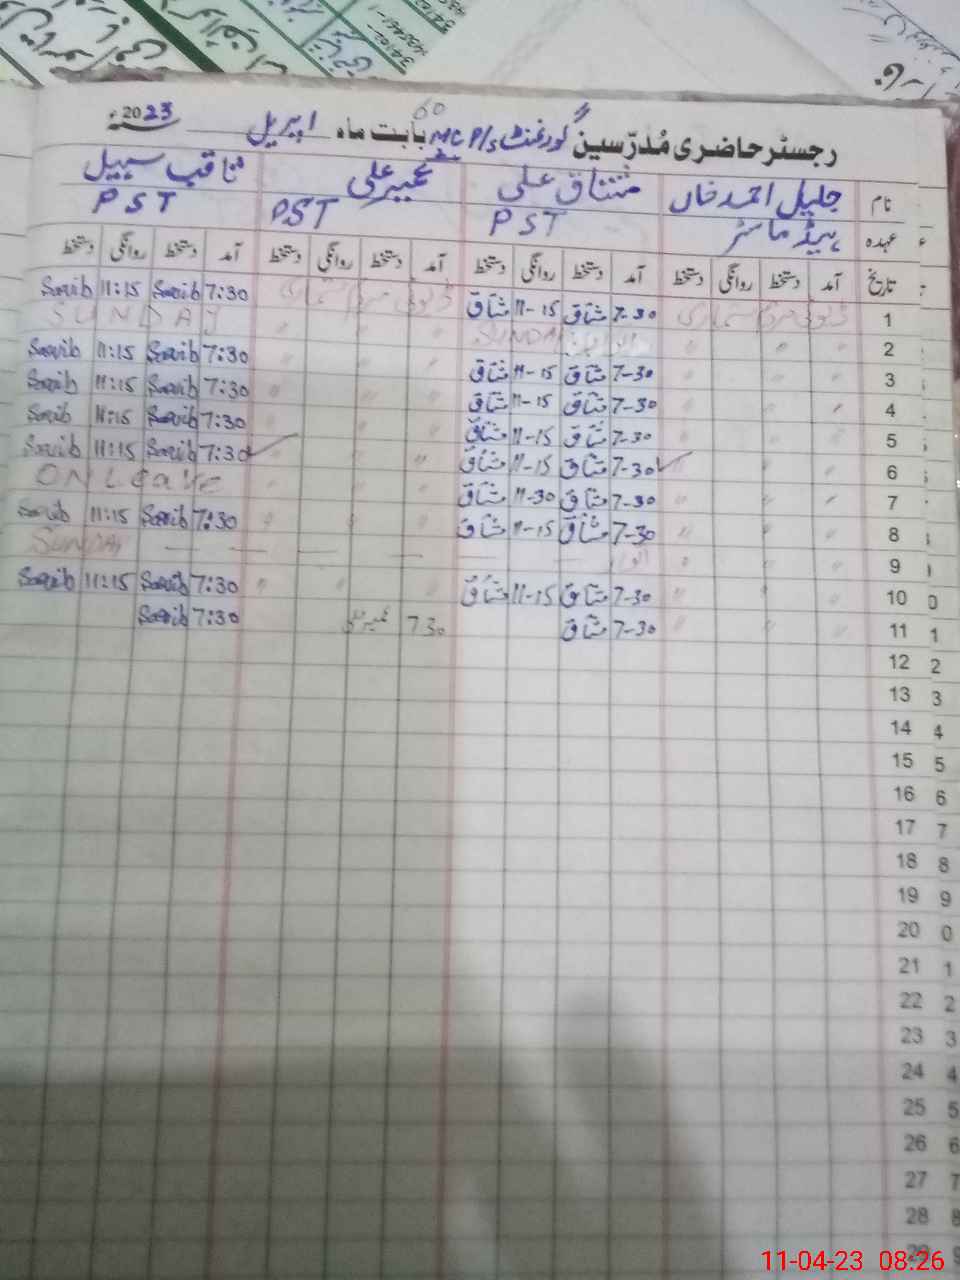 رجسٹر حاضری مُدرّسین گورنمنٹ MC P/S 60 بابت ماہ اپریل 2023ء
نام جلیل احمد خاں مشتاق علی ثاقب سہیل
عہدہ ہیڈ ماسٹر PST PST PST
تاریخ آمد دستخط روانگی دستخط آمد دستخط روانگی دستخط آمد دستخط روانگی دستخط آمد دستخط روانگی دستخط
1 ڈیوٹی مردم شماری 7-30 مشتاق 11-15 مشتاق ڈیوٹی مردم شماری 7:30 Saqib 11:15 Saqib
2 " " " SUNDAY " " " SUNDAY
3 " " " 7-30 مشتاق 11-15 مشتاق " " " 7:30 Saqib 11:15 Saqib
4 " " " 7-30 مشتاق 11-15 مشتاق " " " 7:30 Saqib 11:15 Saqib
5 " " " 7-30 مشتاق 11-15 مشتاق " " " 7:30 Saqib 11:15 Saqib
6 " " " 7-30 مشتاق 11-15 مشتاق " " " 7:30 Saqib 11:15 Saqib
7 " " " 7-30 مشتاق 11-30 مشتاق " " " ON Leave
8 " " " 7-30 مشتاق 11-15 مشتاق " " " 7:30 Saqib 11:15 Saqib
9 اتوار SUNDAY
10 " " " 7-30 مشتاق 11-15 مشتاق " " " 7:30 Saqib 11:15 Saqib
11 " " " 7-30 مشتاق 7 30 7:30 Saqib
12
13
14
15
16
17
18
19
20
21
22
23
24
25
26
27
28
29
11-04-23 08:26